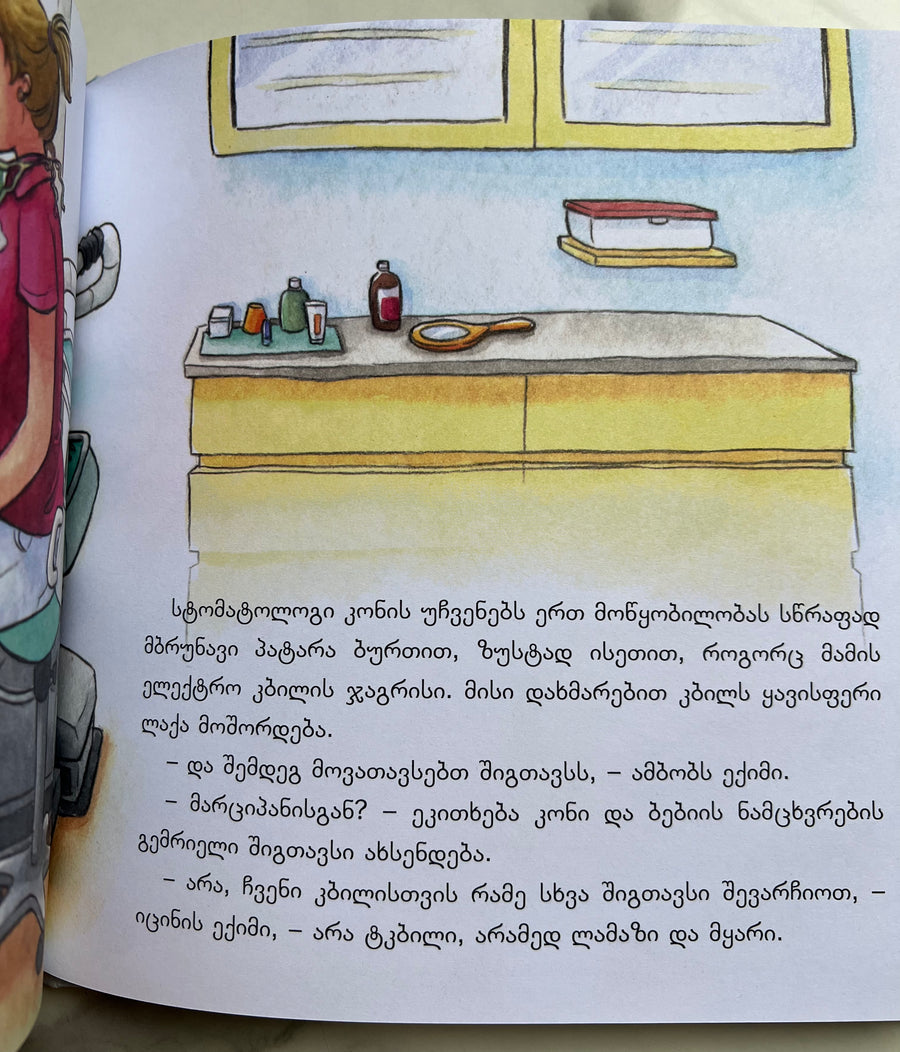 სტომატოლოგი კონის უჩვენებს ერთ მოწყობილობას სწრაფად
მბრუნავი პატარა ბურთით, ზუსტად ისეთით, როგორც მამის
ელექტრო კბილის ჯაგრისი. მისი დახმარებით კბილს ყავისფერი
ლაქა მოშორდება.
– და შემდეგ მოვათავსებთ შიგთავსს, – ამბობს ექიმი.
– მარციპანისგან? – ეკითხება კონი და ბებიის ნამცხვრების
გემრიელი შიგთავსი ახსენდება.
– არა, ჩვენი კბილისთვის რამე სხვა შიგთავსი შევარჩიოთ, –
იცინის ექიმი, – არა ტკბილი, არამედ ლამაზი და მყარი.